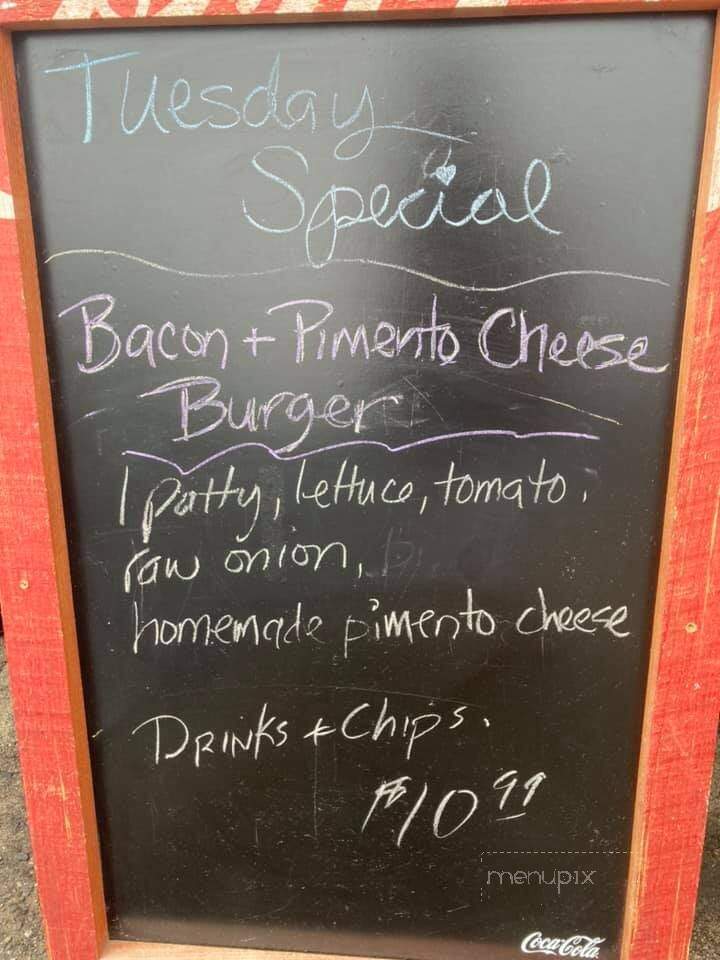 Tuesday
Special
Bacon + Pimento Cheese
Burger
1 patty, lettuce, tomato,
raw onion,
homemade pimento cheese
DRINKS + Chips.
$10.99
menupix
Coca-Cola